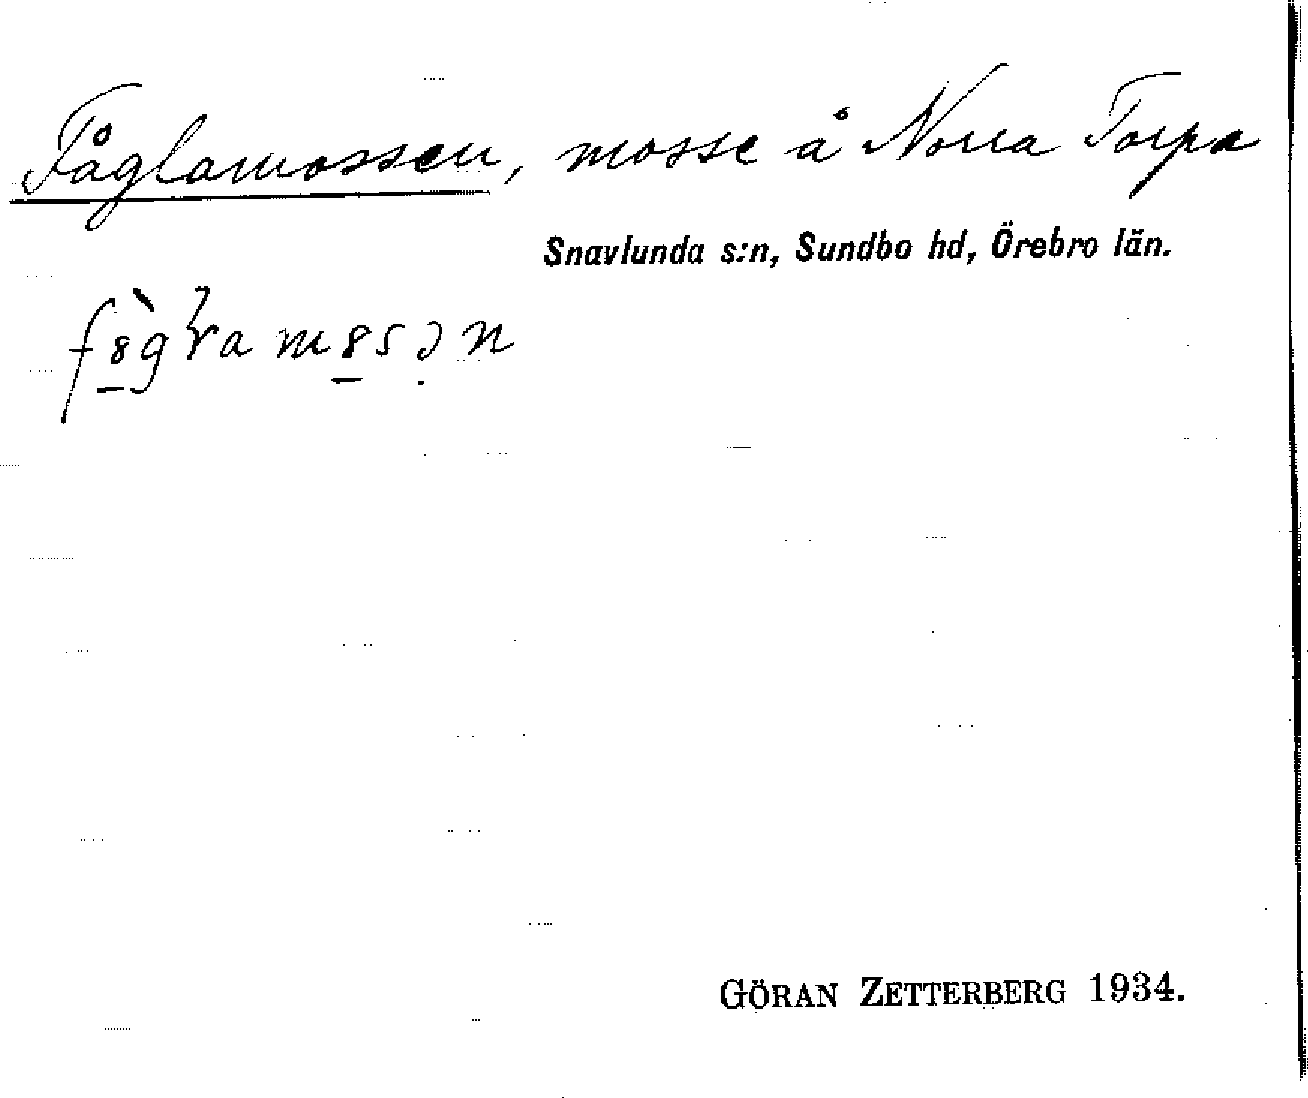 Fåglamossen, mosse å Norra Torpa
Snavlunda s:n, Sundbo hd, Örebro län.
GÖRAN ZETTERBERG 1934.